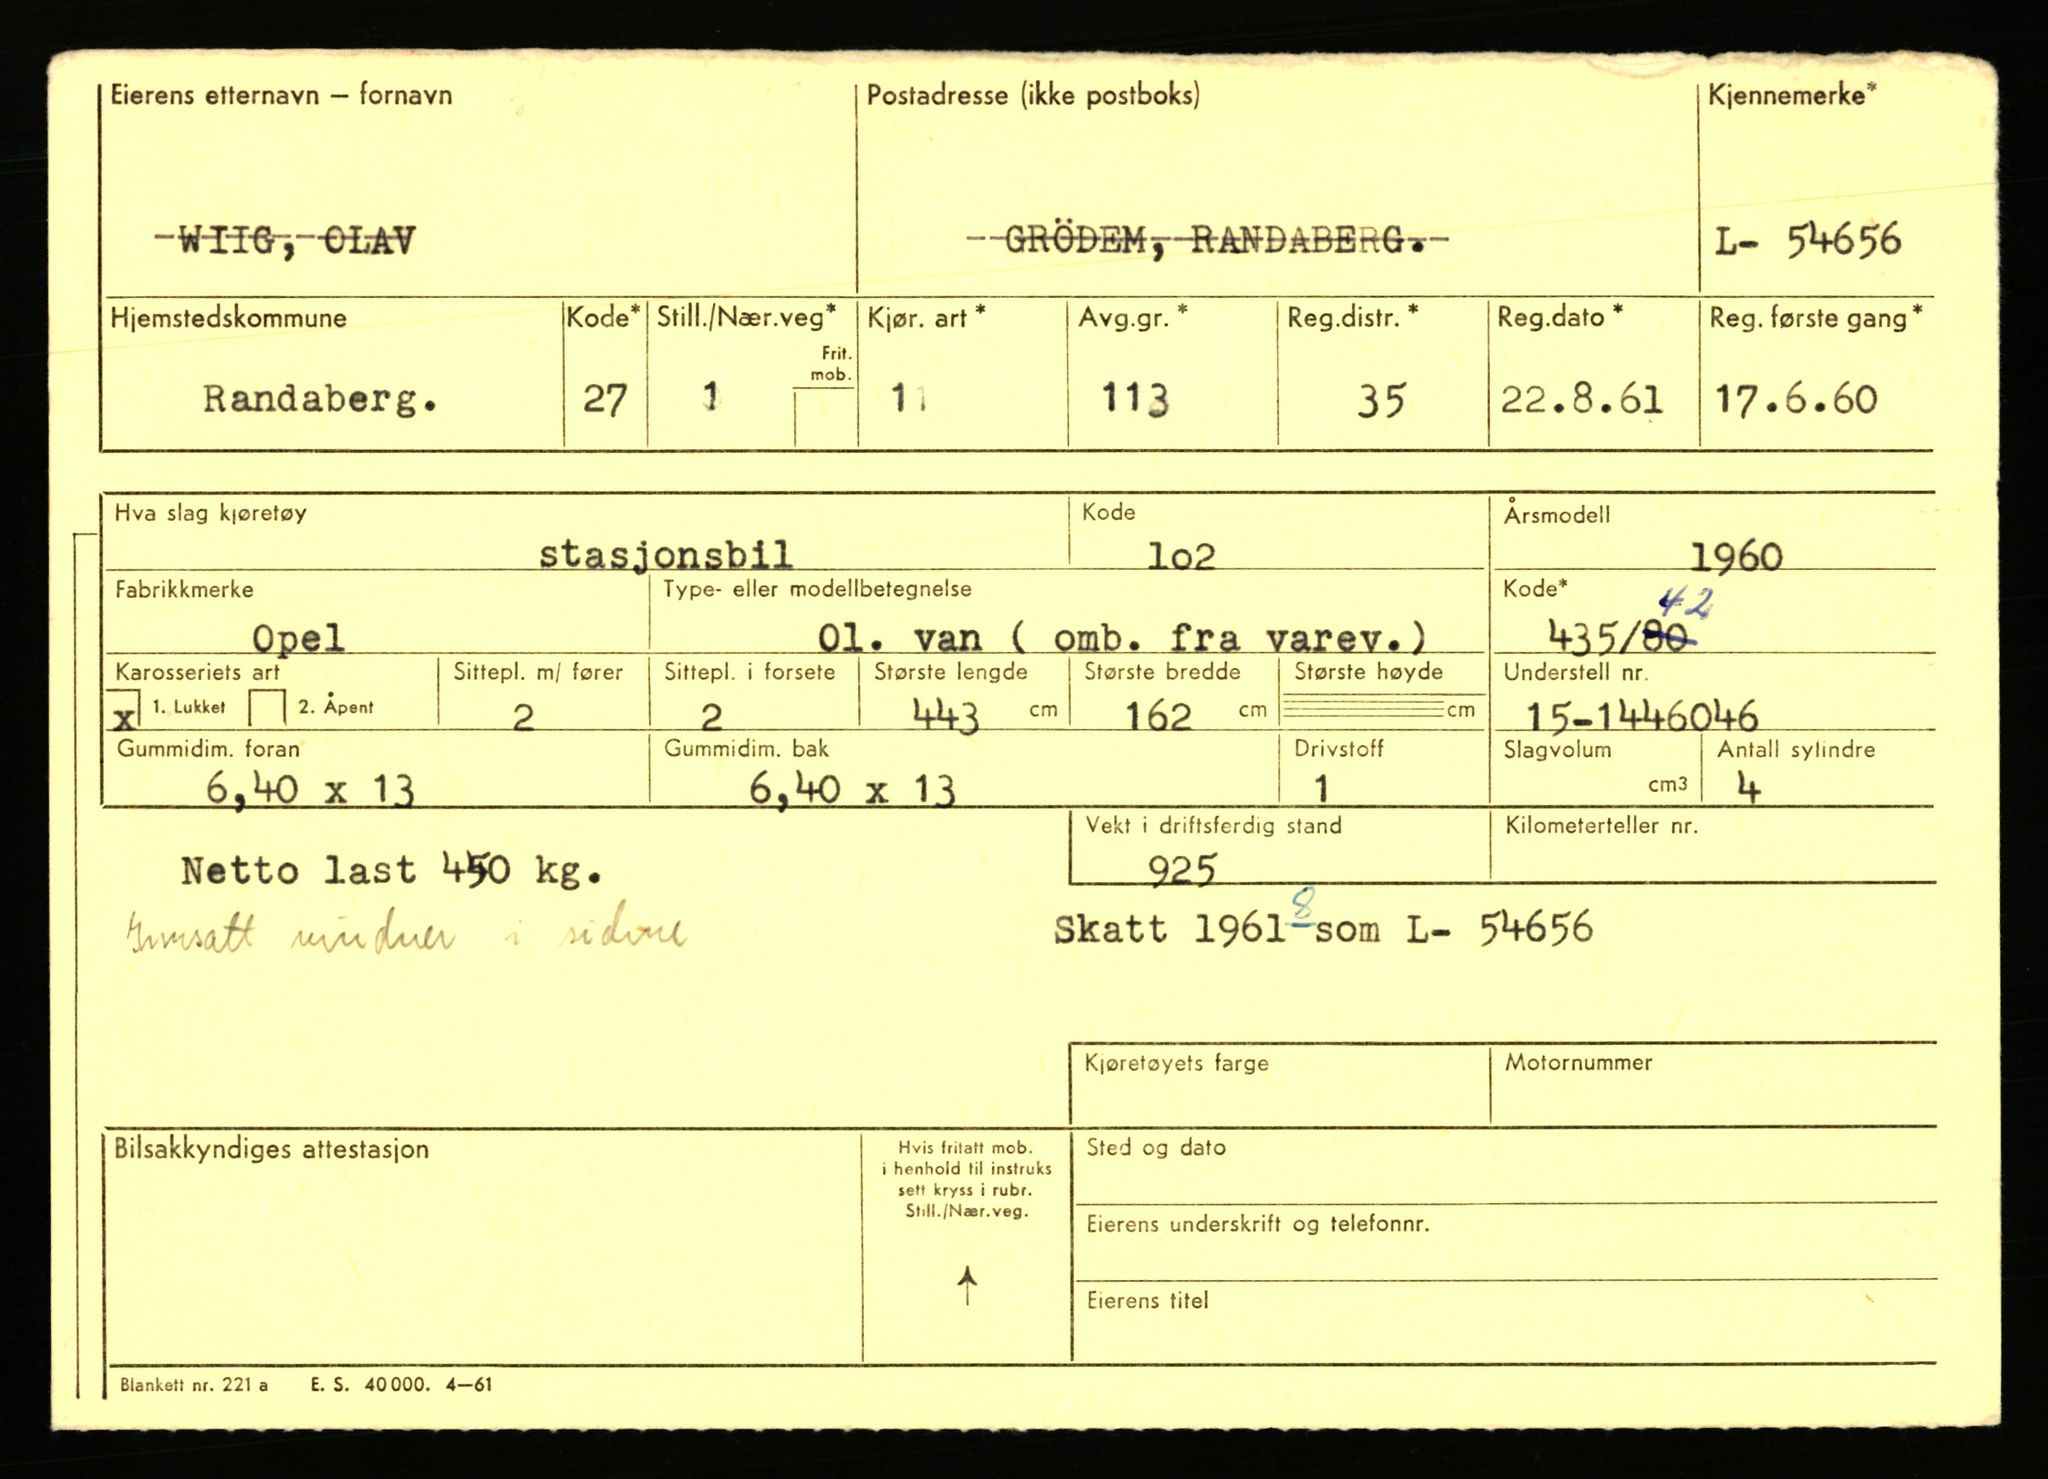 Eierens etternavn – fornavn Postadresse (ikke postboks) Kjennemerke*
-WIIG, OLAV --GRÖDEM, RANDABERG.- L- 54656
Hjemstedskommune Kode* Still./Nær.veg* Kjør. art * Avg.gr. * Reg.distr. * Reg.dato * Reg. første gang *
Frit.
mob.
Randaberg. 27 1 11 113 35 22.8.61 17.6.60
Hva slag kjøretøy Kode Årsmodell
stasjonsbil lo2 1960
Fabrikkmerke Type- eller modellbetegnelse Kode*
42
Opel Ol. van ( omb. fra varev.) 435/80
Karosseriets art Sittepl. m/ fører Sittepl. i forsete Største lengde Største bredde Største høyde Understell nr.
x 1. Lukket 2. Åpent 2 2 443 cm 162 cm cm 15-1446046
Gummidim. foran Gummidim. bak Drivstoff Slagvolum Antall sylindre
6,40 x 13 6,40 x 13 1 cm3 4
Vekt i driftsferdig stand Kilometerteller nr.
Netto last 450 kg. 925
8
Innsatt vinduer i sidene Skatt 1961 som L- 54656
Kjøretøyets farge Motornummer
Bilsakkyndiges attestasjon Hvis fritatt mob. Sted og dato
i henhold til instruks
sett kryss i rubr.
Still./Nær.veg.
Eierens underskrift og telefonnr.
Eierens titel
Blankett nr. 221 a E. S. 40 000. 4–61